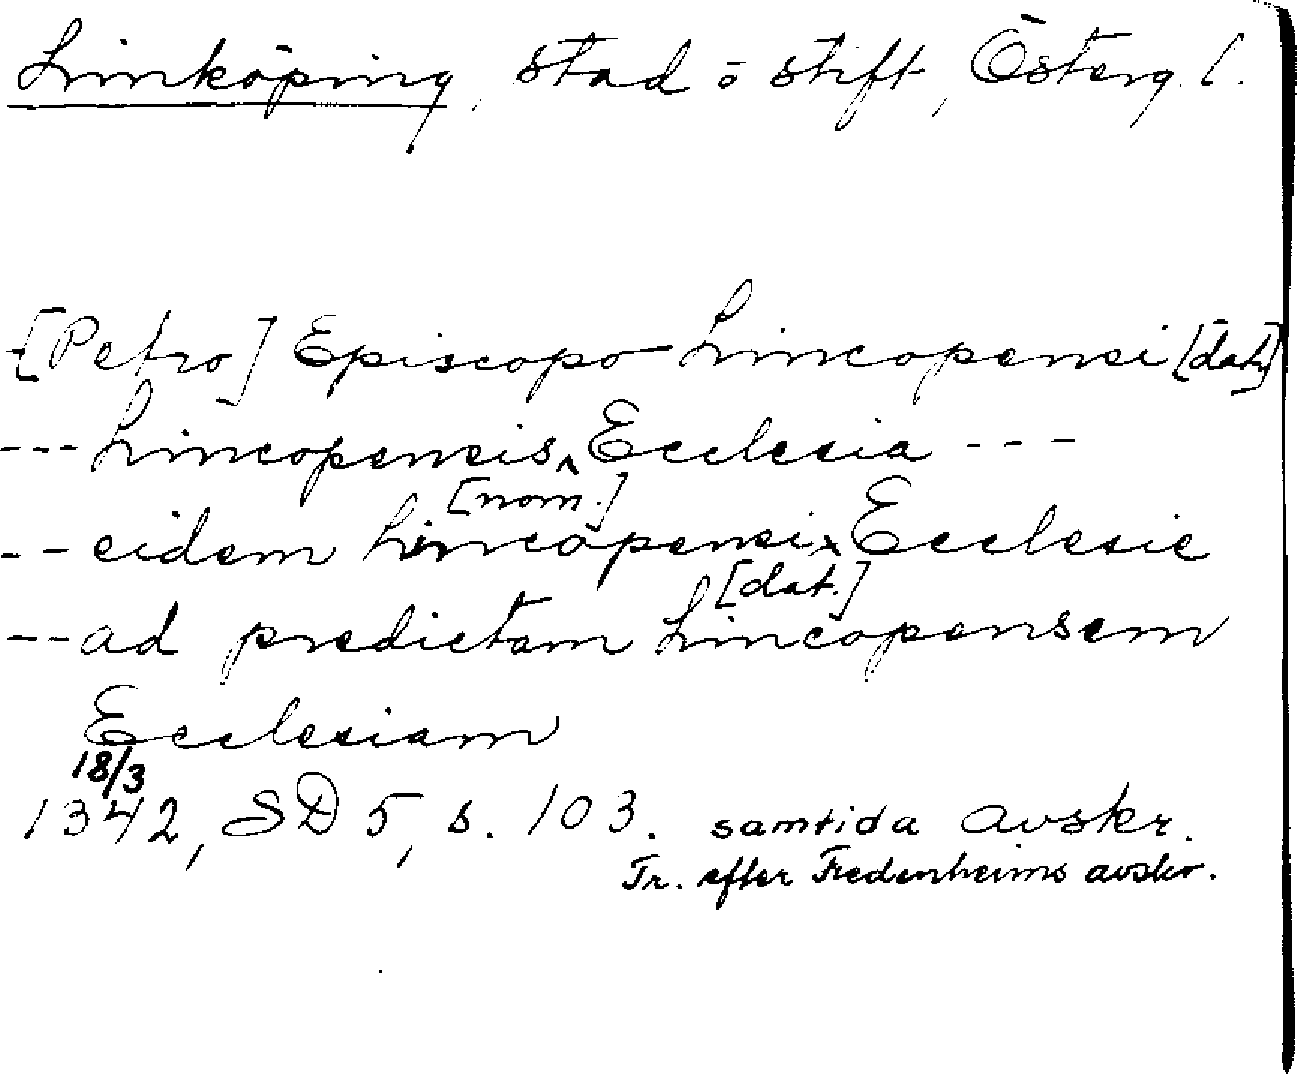 Linköping, stad o stift, Österg. l.
[Petro] Episcopo Lincopensi [dat.]
--- Lincopensis ^ Ecclesia ---
[nom.]
-- eidem Lincopensi ^ Ecclesie
[dat.]
-- ad predictam Lincopensem
Ecclesiam
18/3
1342, SD 5, s. 103. samtida avskr.
Tr. efter Fredenheims avskr.